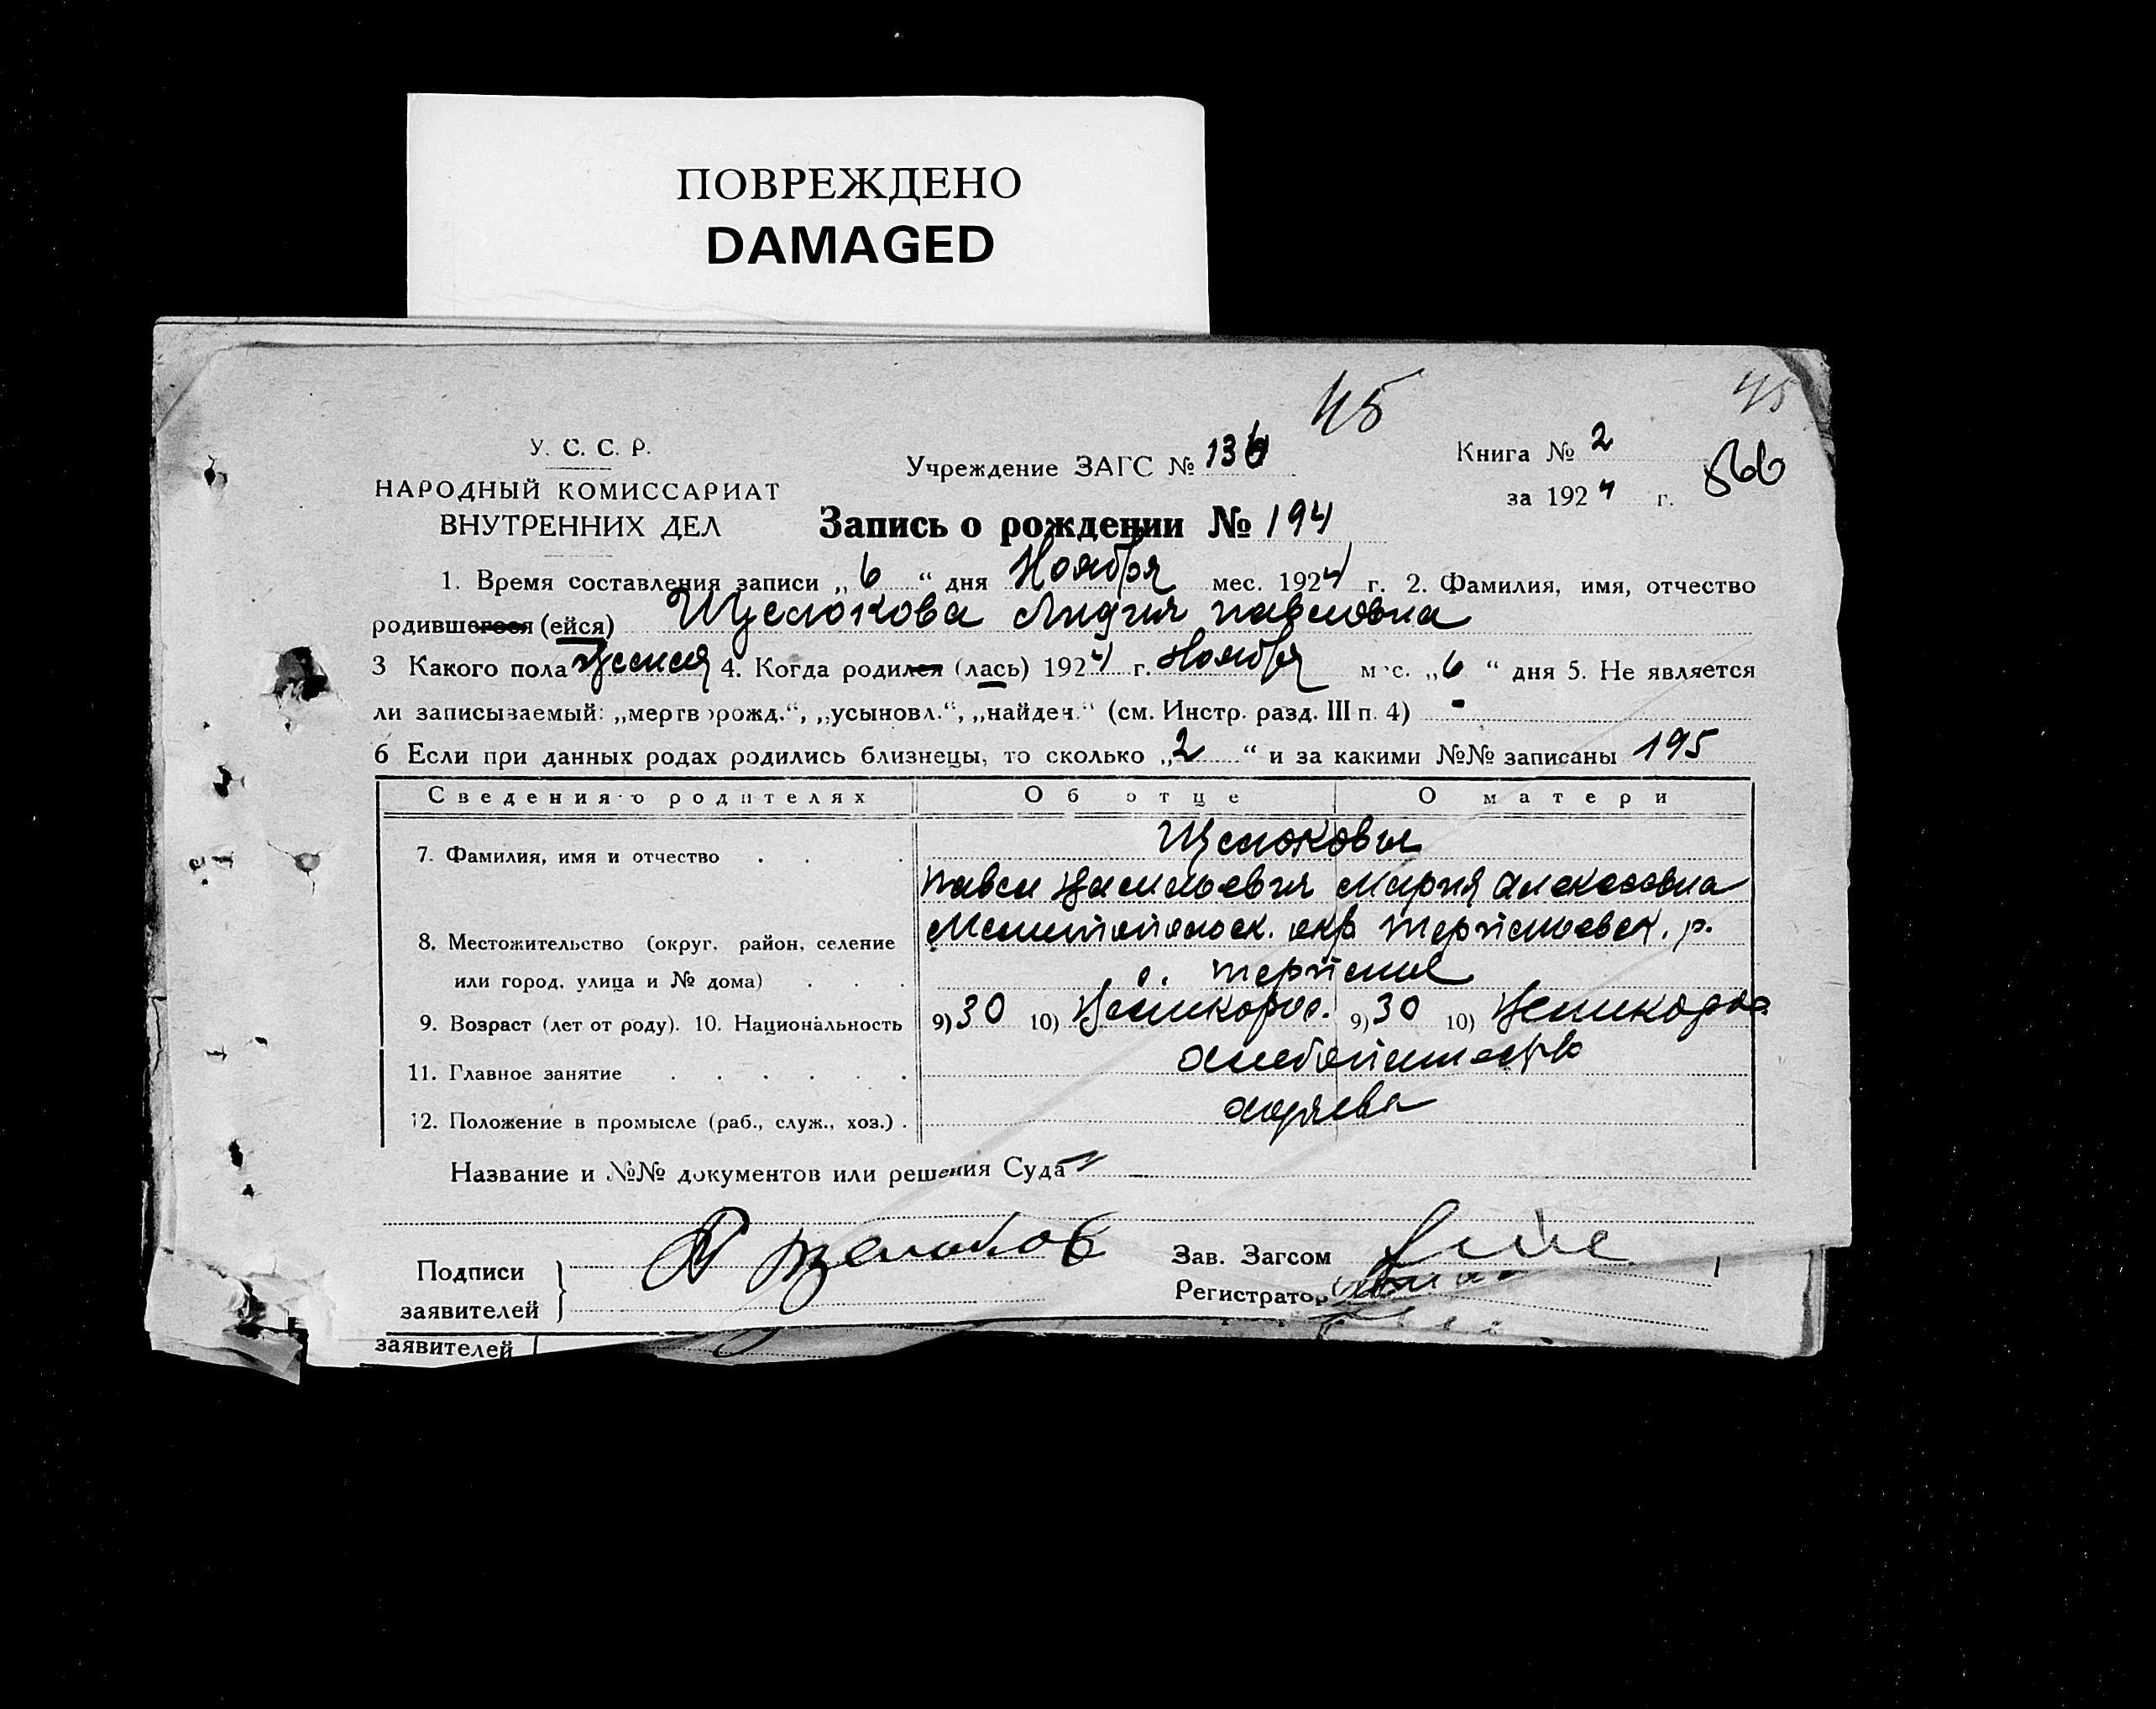 ПОВРЕЖДЕНО
DAMAGED
45
45
У. С. С. Р.
НАРОДНЫЙ КОМИССАРИАТ
ВНУТРЕННИХ ДЕЛ
Учреждение ЗАГС № 136
Книга № 2
за 1924 г.
Запись о рождении № 194
1. Время составления записи „ 6 “ дня Ноября мес. 1924 г. 2. Фамилия, имя, отчество
родившегося (ейся) Щелокова Лидия Павловна
3 Какого пола женск 4. Когда родился (лась) 1924 г. Ноября мес. „ 6 “ дня 5. Не является
ли записываемый: „мертворожд.“, „усыновл.“, „найден.“ (см. Инстр. разд. III п. 4) -
6 Если при данных родах родились близнецы, то сколько „ 2 “ и за какими №№ записаны 195
Сведения о родителях Об отце О матери
7. Фамилия, имя и отчество Щелоковы
Павел Васильевич Мария Алексеевна
8. Местожительство (округ, район, селение Мелитопольск. окр. Терпеньевск. р.
или город, улица и № дома) с. Терпенье
9. Возраст (лет от роду). 10. Национальность 9) 30 10) Великорос. 9) 30 10) Великорос
11. Главное занятие хлебопашество
12. Положение в промысле (раб., служ., хоз.)
Название и №№ документов или решения Суда
Подписи П Щелоков Зав. Загсом
заявителей Регистратор
заявителей